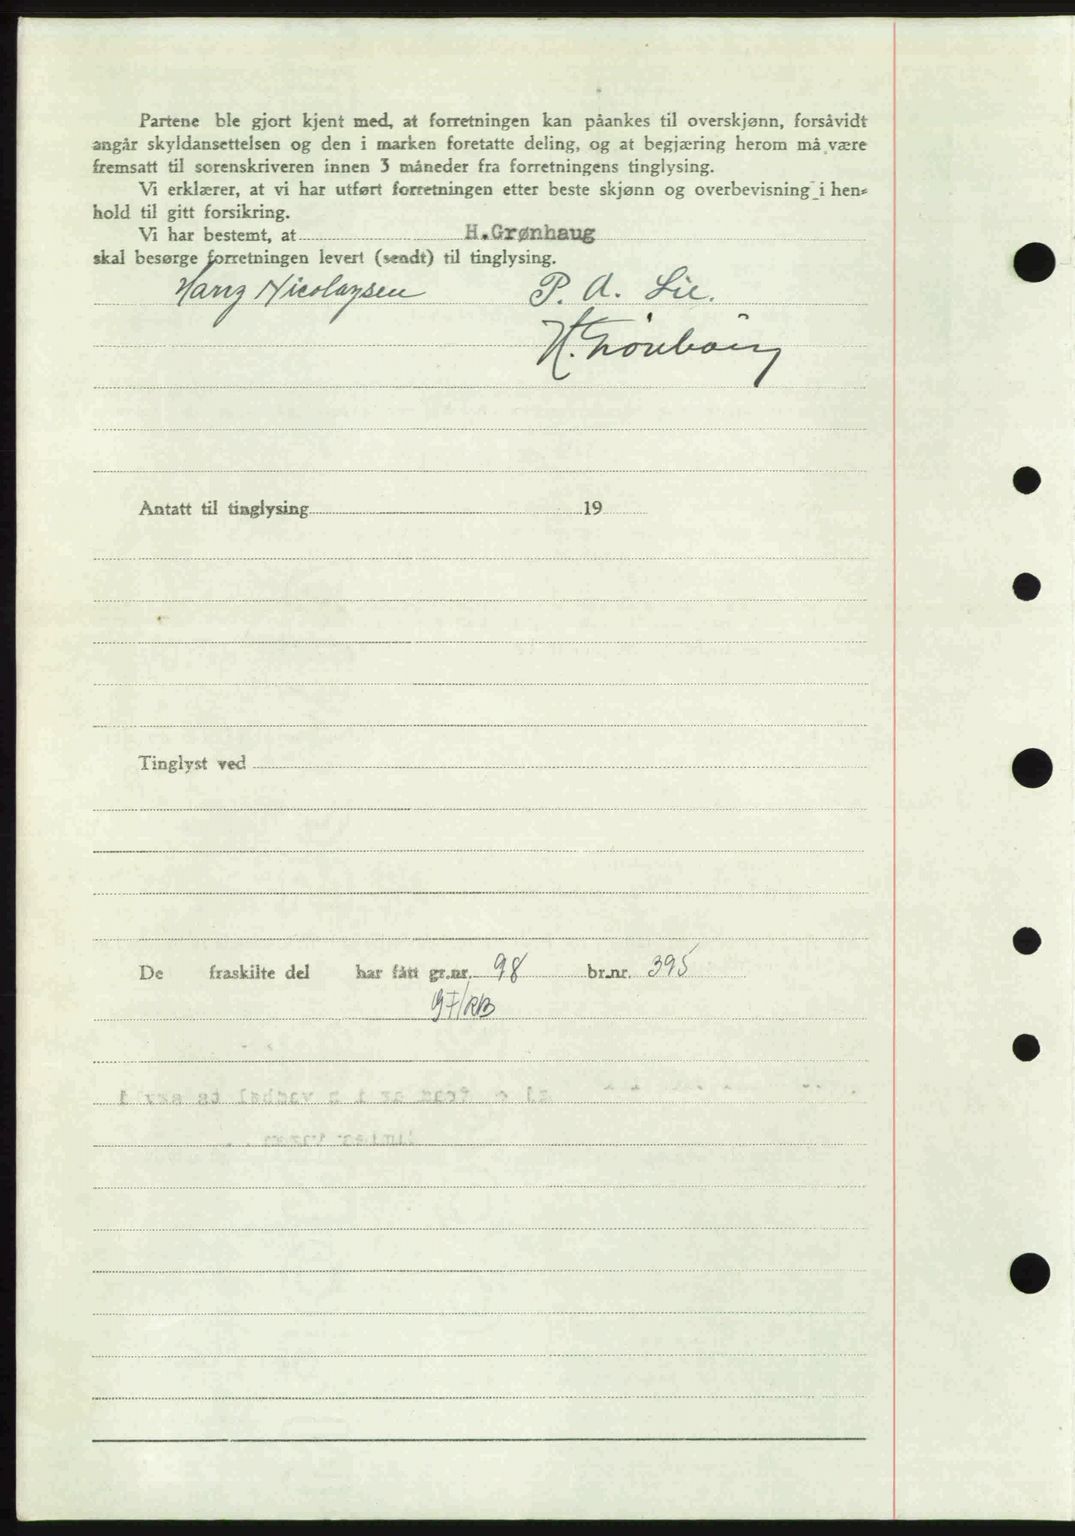 Partene ble gjort kjent med, at forretningen kan påankes til overskjønn, forsåvidt
angår skyldansettelsen og den i marken foretatte deling, og at begjæring herom må være
fremsatt til sorenskriveren innen 3 måneder fra forretningens tinglysing.
Vi erklærer, at vi har utført forretningen etter beste skjønn og overbevisning i hen-
hold til gitt forsikring.
Vi har bestemt, at H.Grønhaug
skal besørge forretningen levert (sendt) til tinglysing.
Harry Nicolaysen P. A. Lie.
H. Grønhaug
Antatt til tinglysing 19
Tinglyst ved
De fraskilte del har fått gr.nr. 98 br.nr. 395